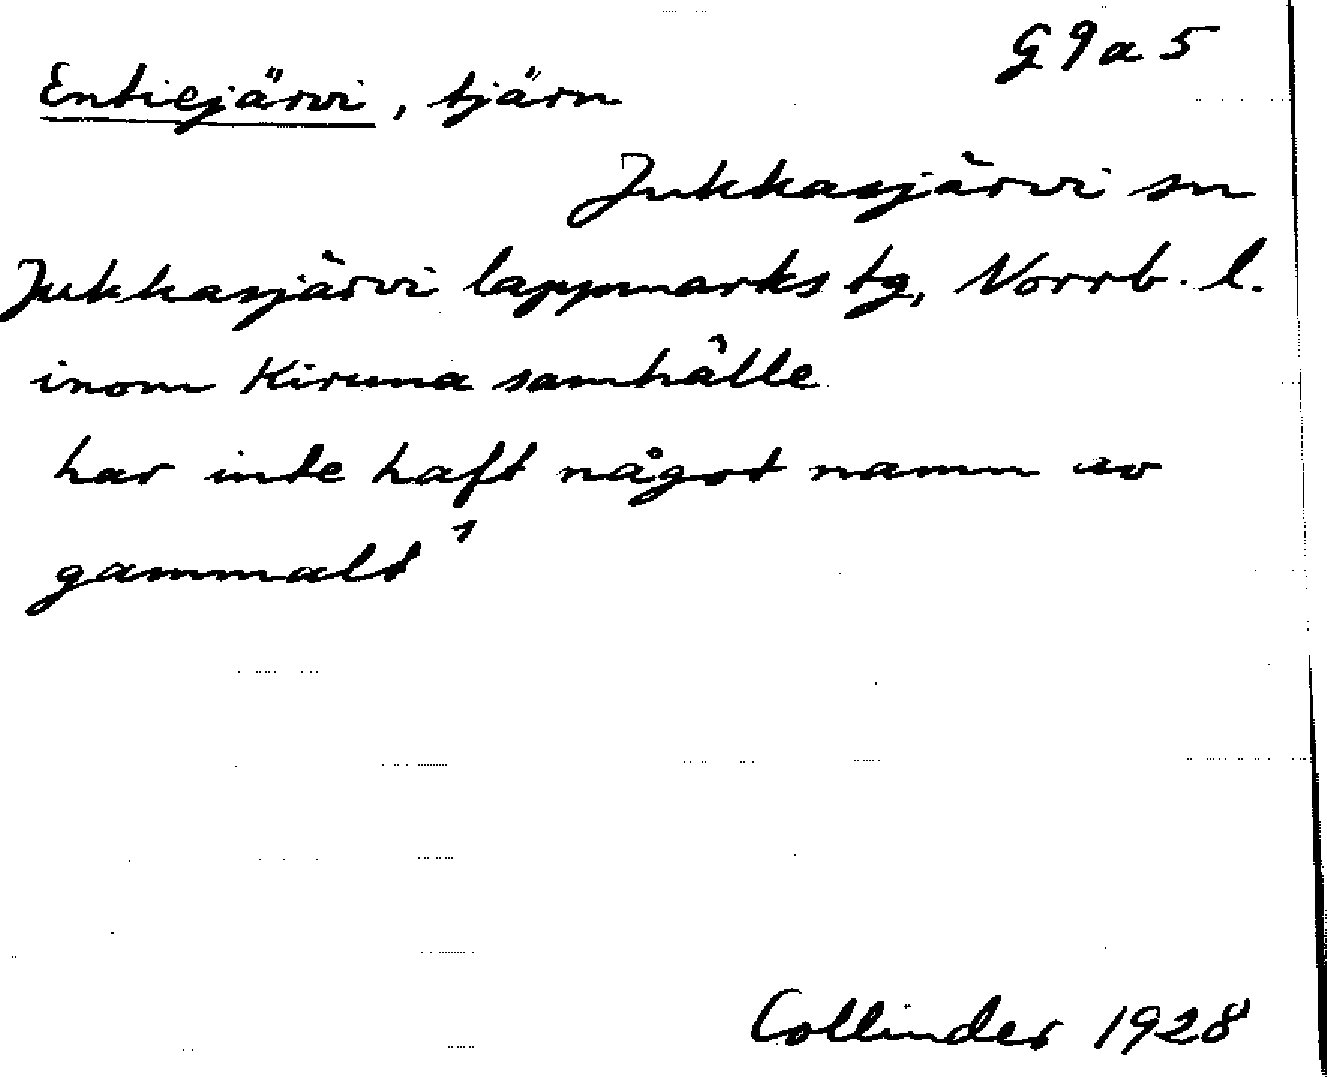 G9a5
Entiejärvi, tjärn
Jukkasjärvi sn
Jukkasjärvi lappmarks tg, Norrb. l.
inom Kiruna samhälle
har inte haft något namn av
gammalt"
Collinder 1928